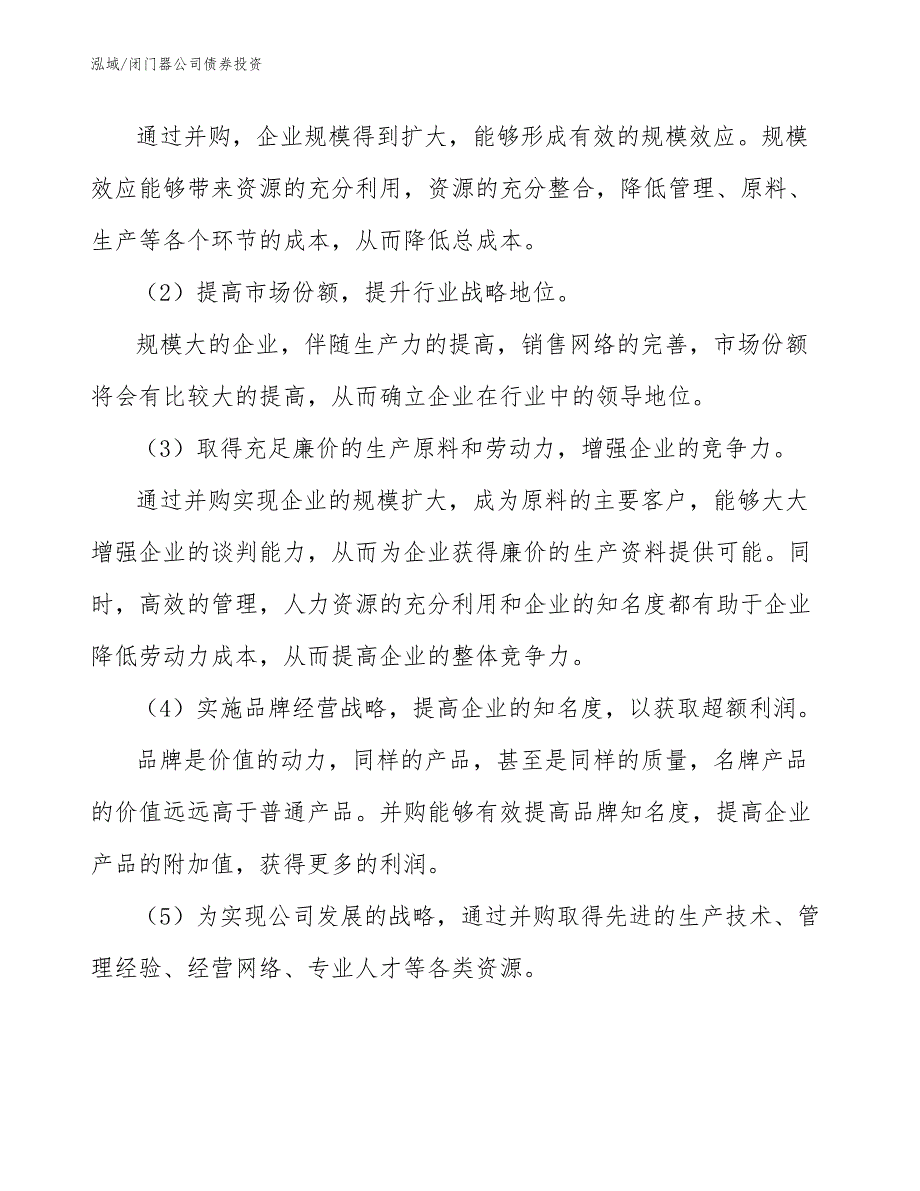 泓域/闭门器公司债券投资
通过并购，企业规模得到扩大，能够形成有效的规模效应。规模
效应能够带来资源的充分利用，资源的充分整合，降低管理、原料、
生产等各个环节的成本，从而降低总成本。
（2）提高市场份额，提升行业战略地位。
规模大的企业，伴随生产力的提高，销售网络的完善，市场份额
将会有比较大的提高，从而确立企业在行业中的领导地位。
（3）取得充足廉价的生产原料和劳动力，增强企业的竞争力。
通过并购实现企业的规模扩大，成为原料的主要客户，能够大大
增强企业的谈判能力，从而为企业获得廉价的生产资料提供可能。同
时，高效的管理，人力资源的充分利用和企业的知名度都有助于企业
降低劳动力成本，从而提高企业的整体竞争力。
（4）实施品牌经营战略，提高企业的知名度，以获取超额利润。
品牌是价值的动力，同样的产品，甚至是同样的质量，名牌产品
的价值远远高于普通产品。并购能够有效提高品牌知名度，提高企业
产品的附加值，获得更多的利润。
（5）为实现公司发展的战略，通过并购取得先进的生产技术、管
理经验、经营网络、专业人才等各类资源。